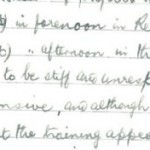 ) in forenoon in Re
b) " afternoon in th
to be stiff and unresp
nsive, and although
t the training appe